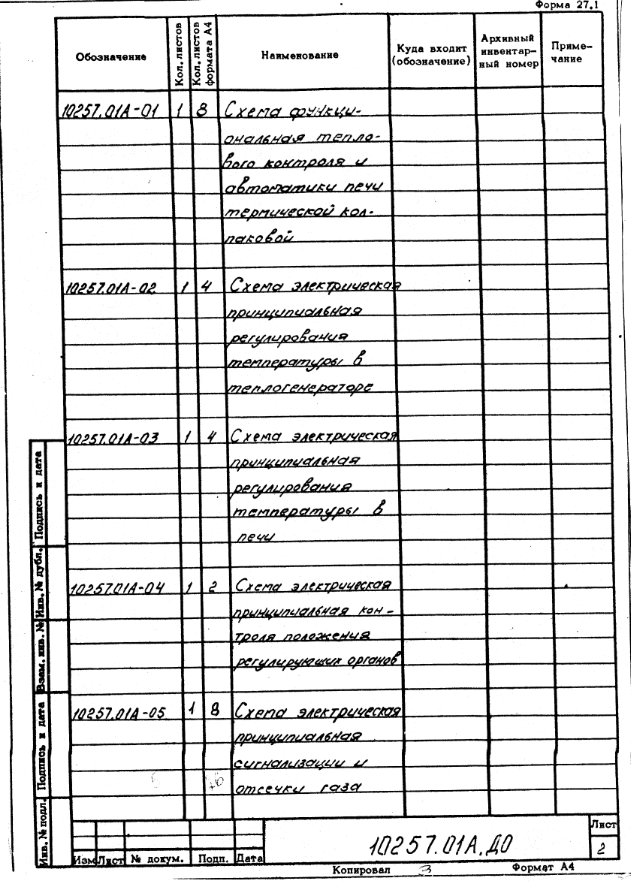 Форма 27.1
Обозначение
Кол. листов
Кол. листов формата А4
Наименование
Куда входит (обозначение)
Архивный инвентарный номер
Примечание
10257.01А-01 1 8 Схема функци-
ональная тепло-
вого контроля и
автоматики печи
термической кол-
паковой
10257.01А-02 1 4 Схема электрическая
принципиальная
регулирования
температуры в
теплогенераторе
10257.01А-03 1 4 Схема электрическая
принципиальная
регулирования
температуры в
печи
10257.01А-04 1 2 Схема электрическая
принципиальная кон-
троля положения
регулирующих органов
10257.01А-05 1 8 Схема электрическая
принципиальная
сигнализации и
отсечки газа
Инв. № подл.
Подпись и дата
Взам. инв. №
Инв. № дубл.
Подпись и дата
Изм Лист № докум. Подп. Дата
10257.01А.ДО
Лист
2
Копировал
Формат А4